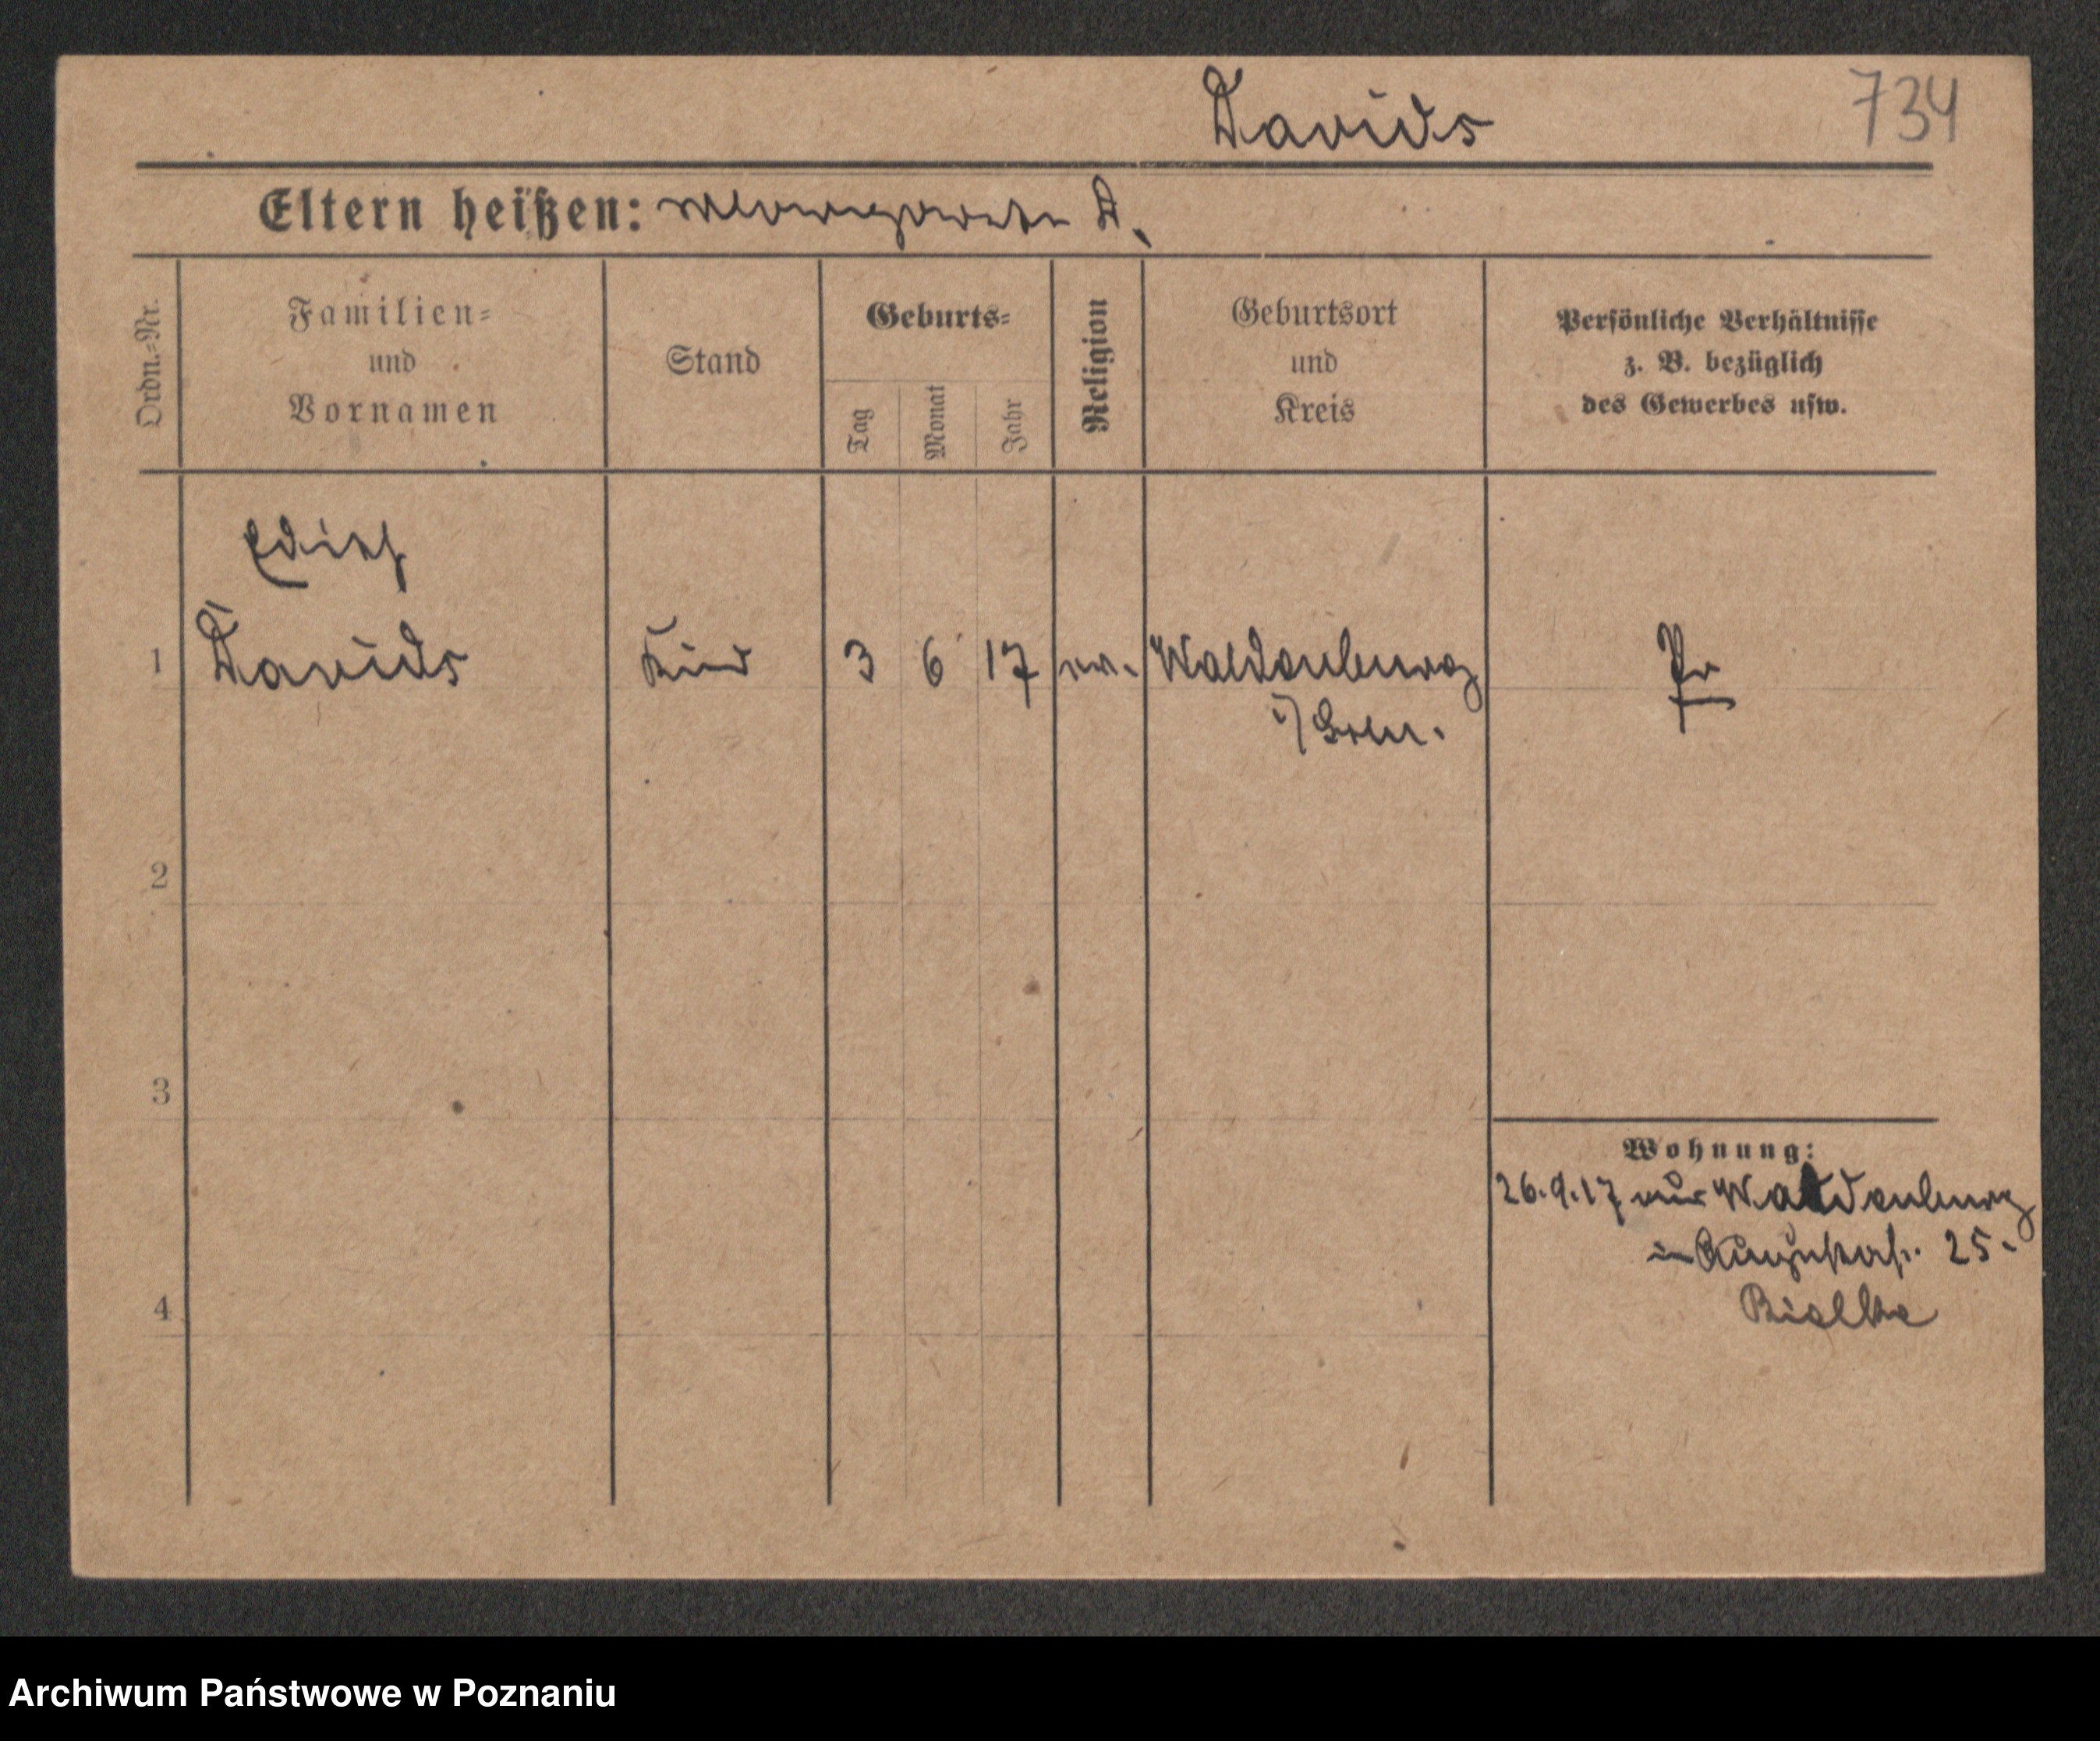 Davids 734
Eltern heißen: Margarete D.
Ordn.=Nr.
Familien=
und
Vornamen
Stand
Geburts=
Tag
Monat
Jahr
Religion
Geburtsort
und
Kreis
Persönliche Verhältnisse
z. B. bezüglich
des Gewerbes usw.
Edith
1 Davids Kind 3 6 17 ev. Waldenburg Pr
i/ Schl.
2
3
4
Wohnung:
26.9.17 aus Waldenburg
in Augustastr. 25.
Bialke
Archiwum Państwowe w Poznaniu